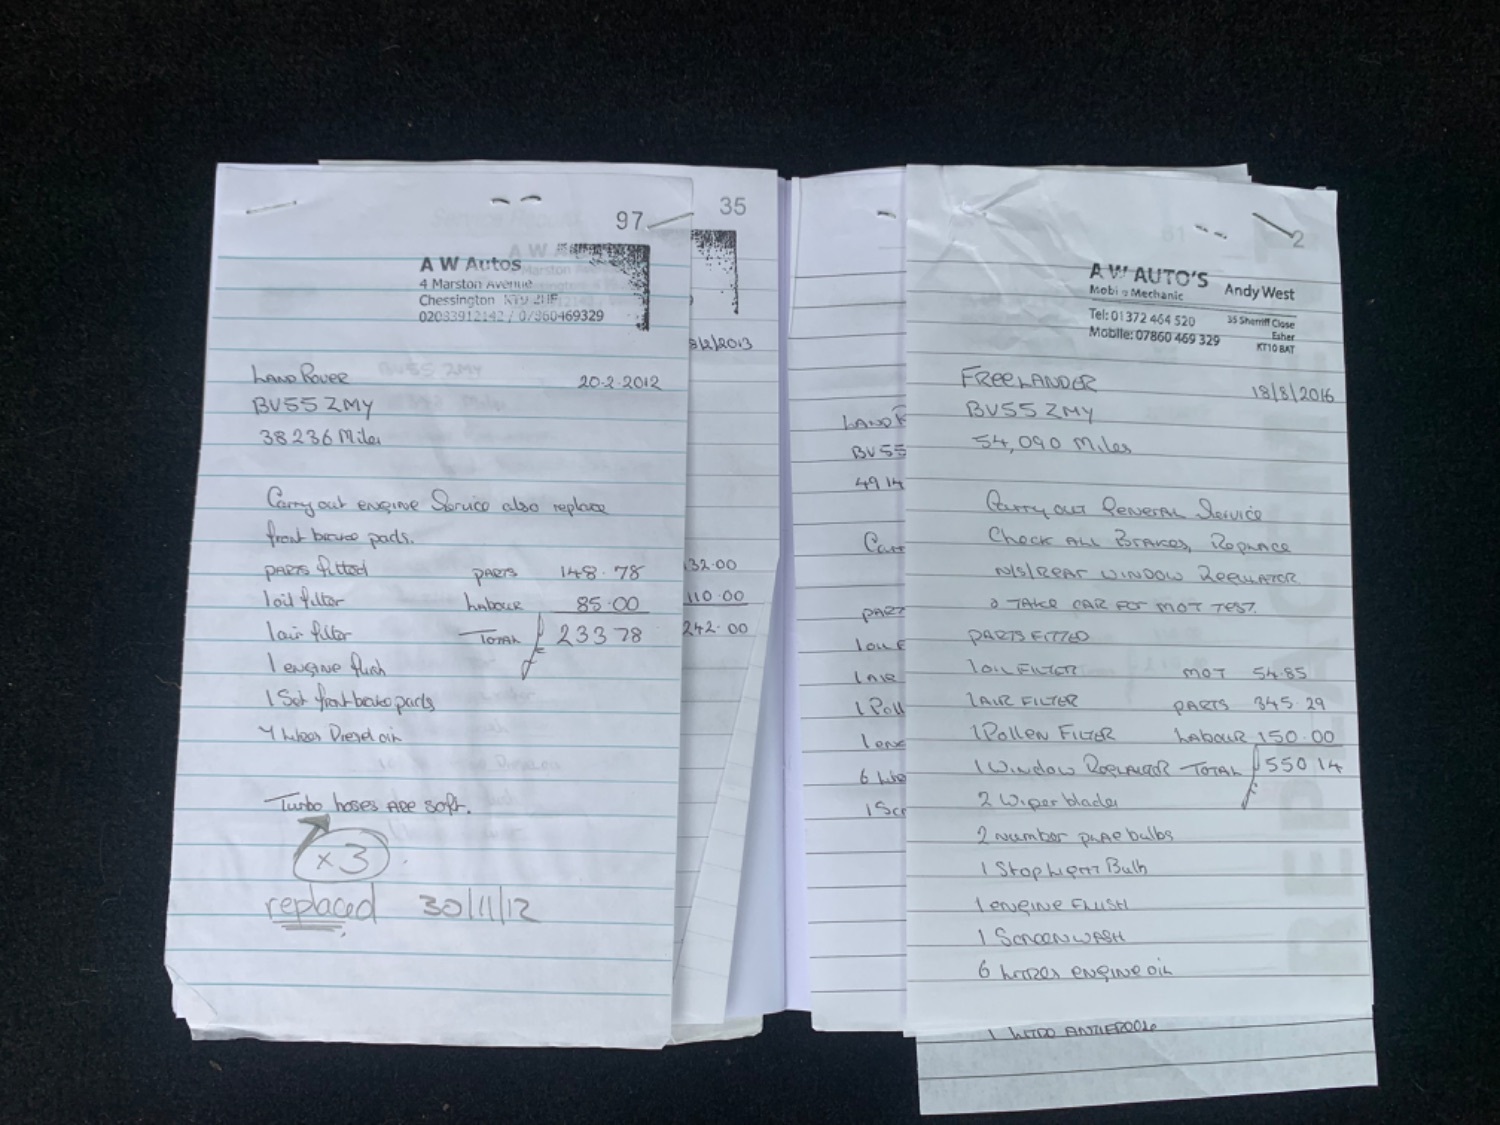 97
A W Autos
4 Marston Avenue
Chessington
LAND ROVER 20-2-2012
BV55 ZMY
38236 Miles
Carry out engine Service also replace
front brake pads.
parts fitted PARTS 148.78
1 oil filter Labour 85.00
1 air filter TOTAL £ 233 78
1 engine flush
1 Set front brake pads
Diesel oil
Turbo hoses ARE soft.
x 3
replaced 30/11/12
35
/2/2013
32.00
110.00
242.00
LAND R
BV55
4914
Carr
PART
1 OIL F
1 AIR
1 Poll
1 eng
6 Lit
1 Scr
2
A W AUTO'S
Mobile Mechanic Andy West
Tel: 01372 464 520 35 Sherriff Close
Mobile: 07860 469 329 Esher
KT10 8AT
FREELANDER 18/8/2016
BV55 ZMY
54,090 Miles
Carry out General Service
Check ALL BRAKES, Replace
N/S/REAR WINDOW REGULATOR
& TAKE CAR FOR MOT TEST.
PARTS FITTED
1 OIL FILTER MOT 54.85
1 AIR FILTER PARTS 345.29
1 Pollen FILTER Labour 150.00
1 WINDOW REGULATOR TOTAL £ 550 14
2 Wiper blades
2 number plate bulbs
1 Stop Light Bulb
1 engine FLUSH
1 SCREENWASH
6 LITRES engine oil
1 LITRE ANTIFREEZE